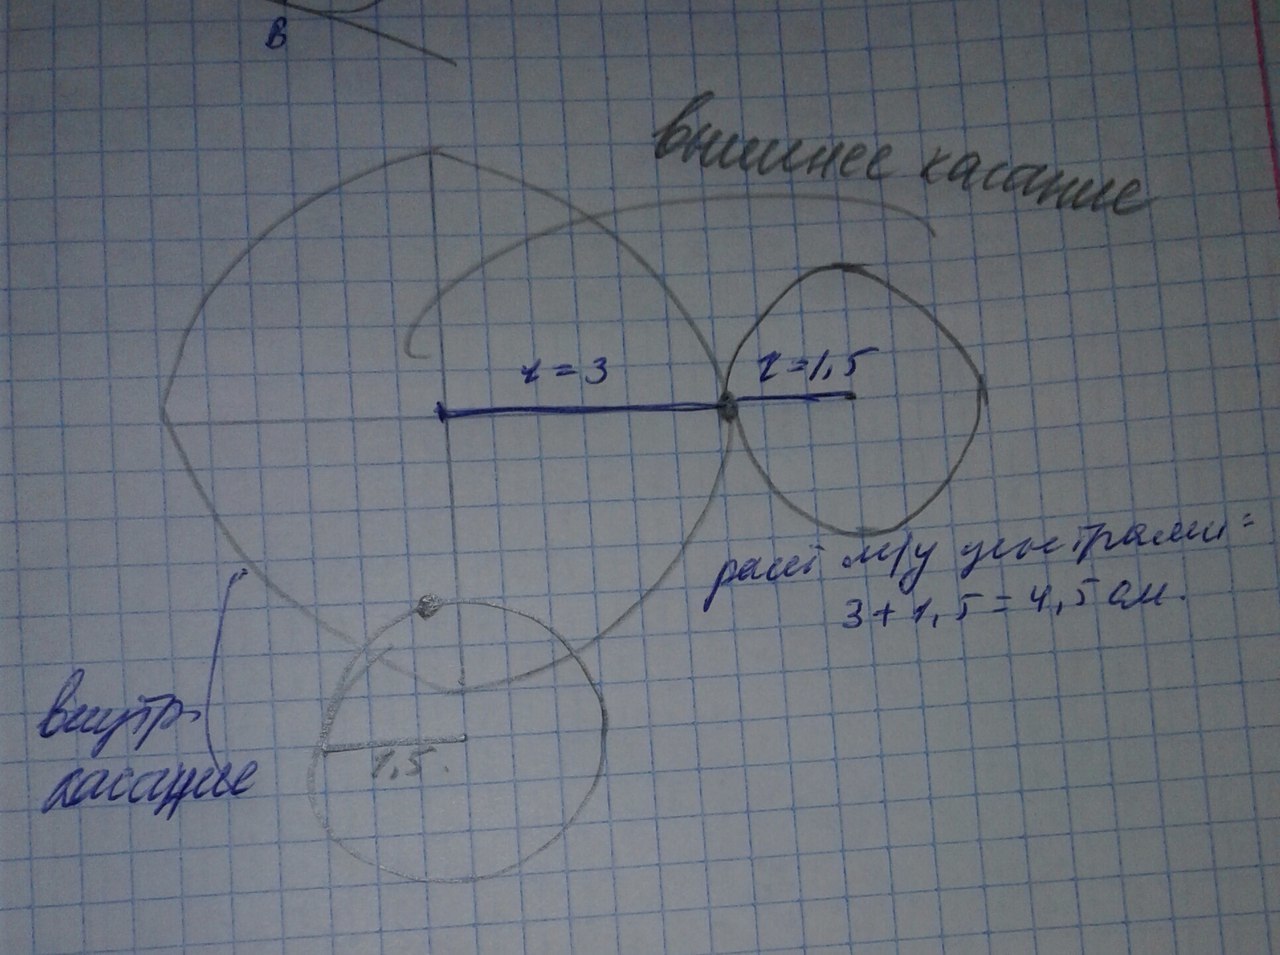 В
внешнее касание
r=3
r=1,5
расст м/у центрами=
3+1,5=4,5 см.
внутр.
касание
1,5.